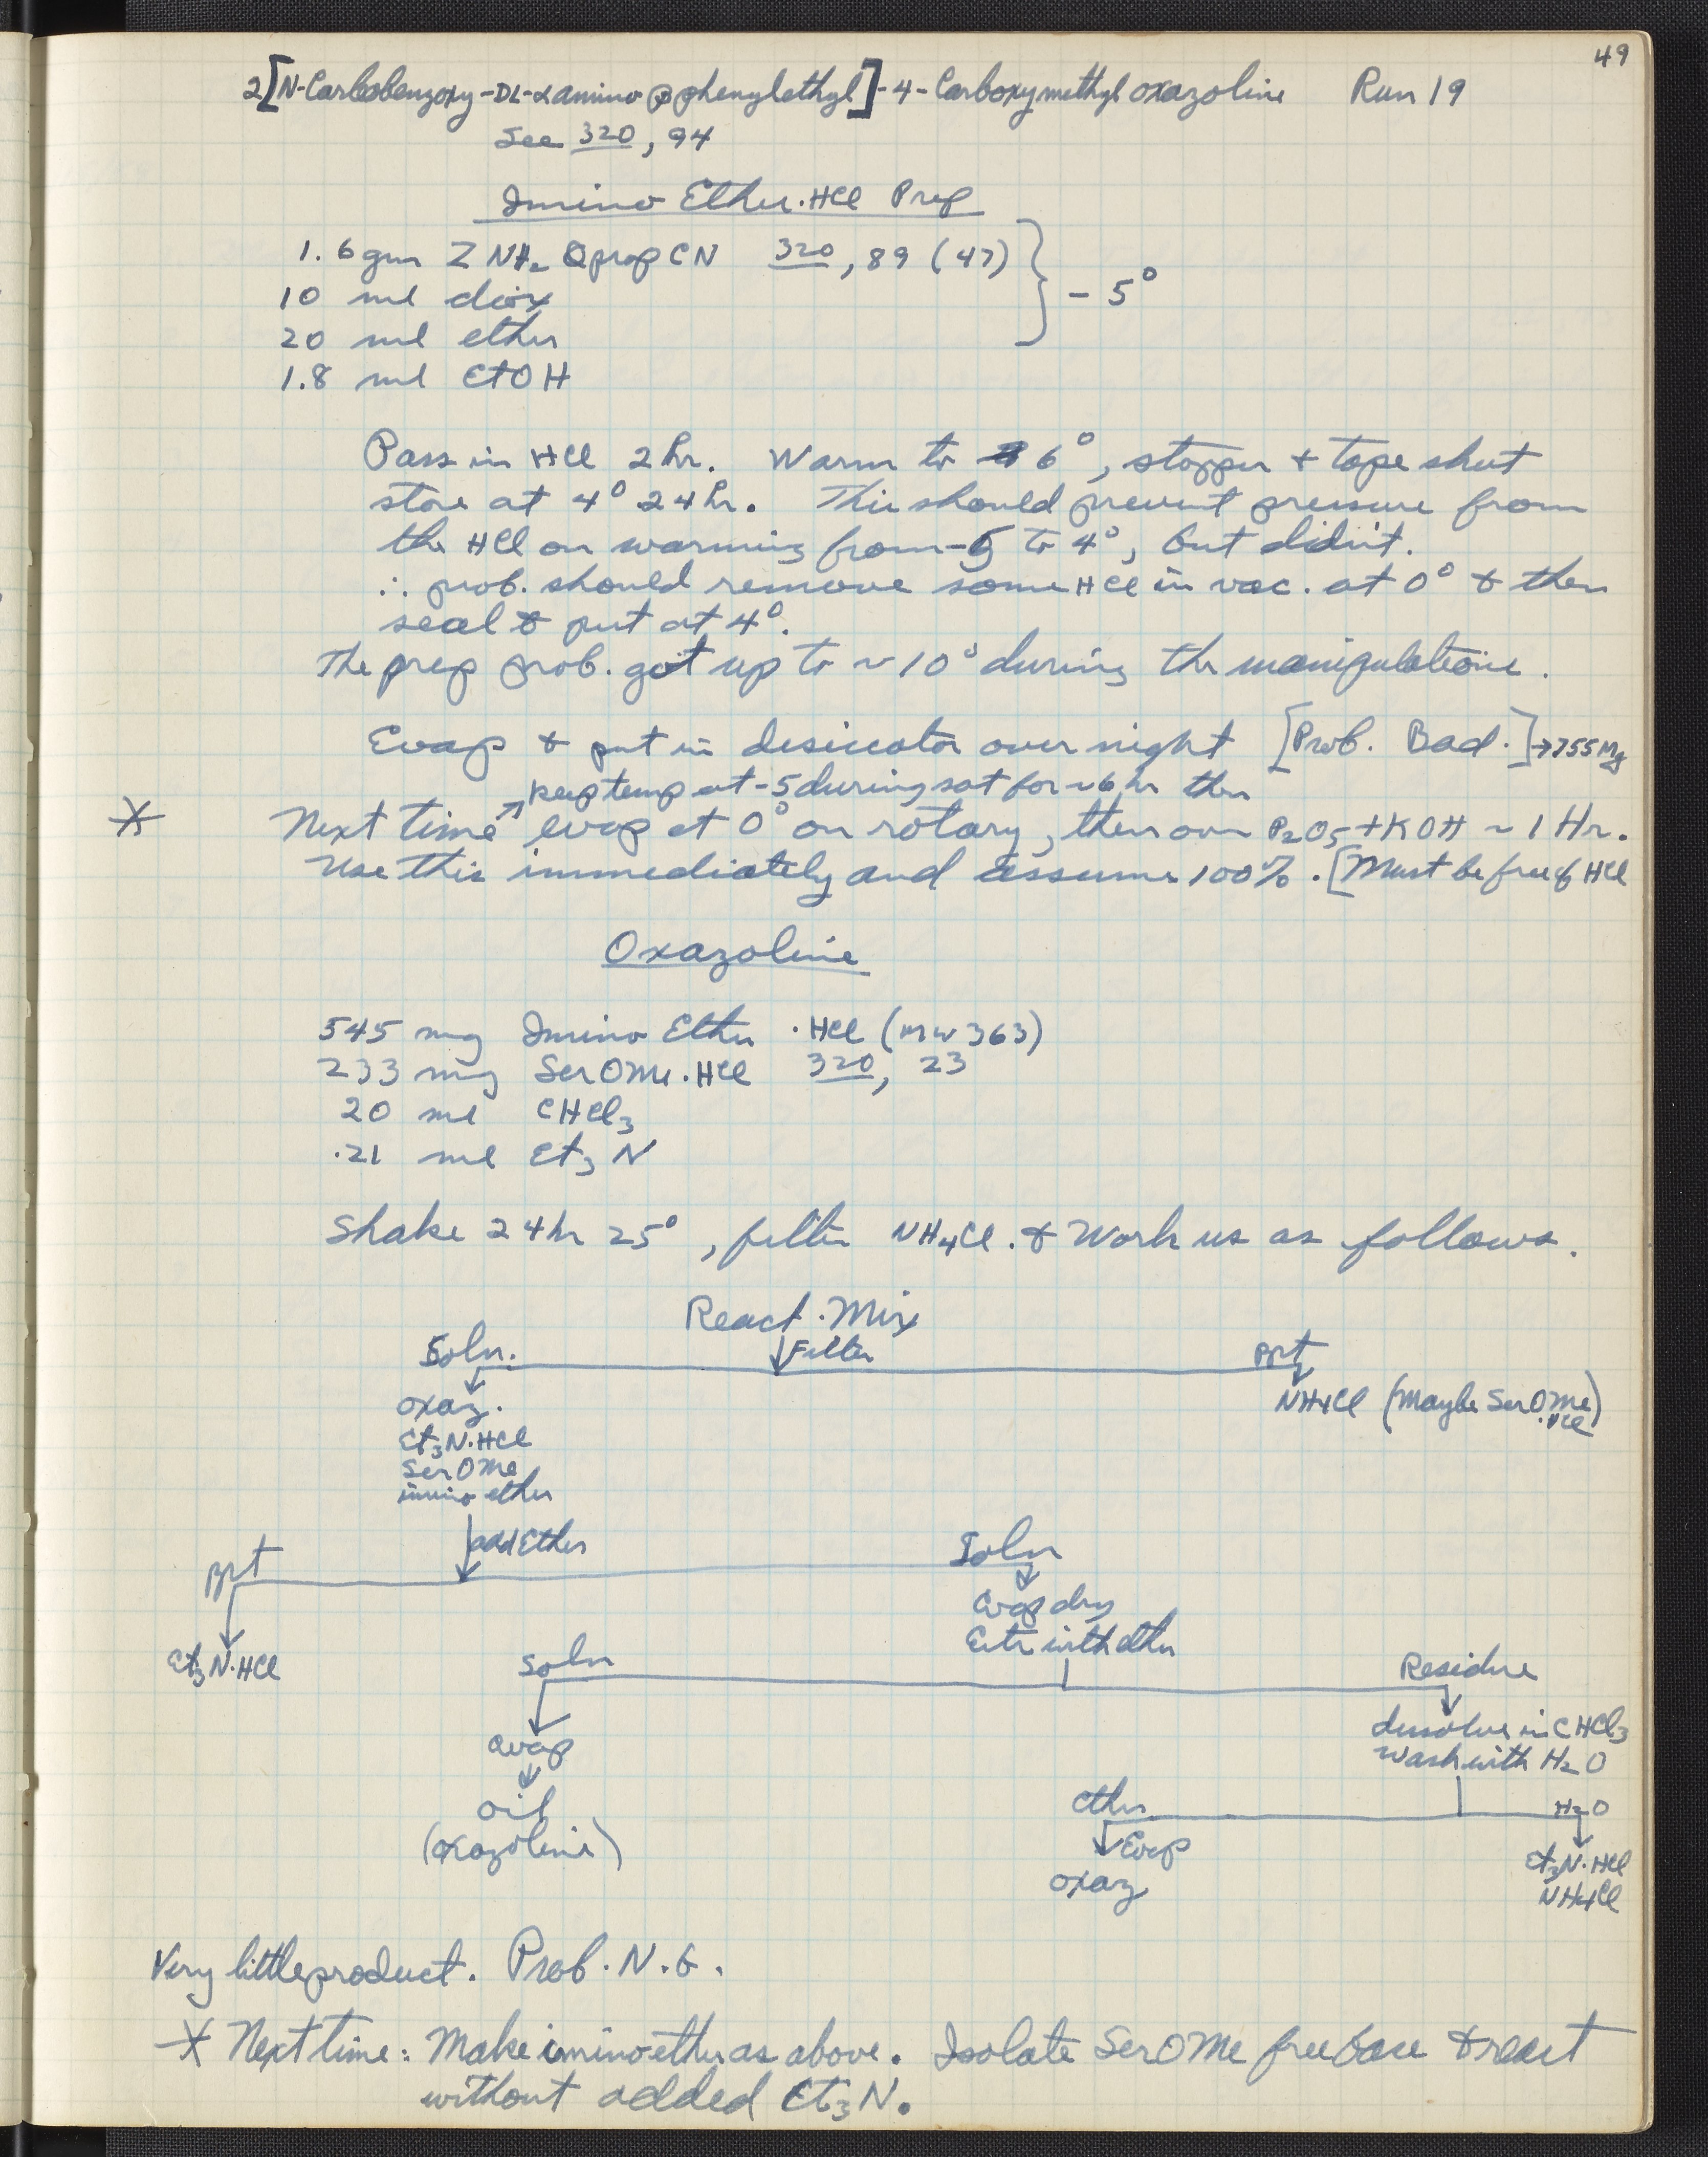 49
2[N-Carbobenzoxy-DL-α amino β phenylethyl]-4-Carboxymethyl oxazoline Run 19
See 320, 94
Imino Ether·HCl Prep
1.6 gm Z NH₂ Φ prop CN 320, 89 (47)
10 ml diox
20 ml ether
1.8 ml EtOH
} - 5°
Pass in HCl 2 hr. Warm to 6°, stopper + tape shut
store at 4° 24 hr. This should prevent pressure from
the HCl on warming from -5 to 4°, but didn't.
∴ prob. should remove some HCl in vac. at 0° & then
seal & put at 4°.
The prep prob. got up to ~10° during the manipulations.
Evap & put in desiccator over night [Prob. Bad.] → 755 Mg
keep temp at -5 during sat for ~6 hr then
* Next time ↗ evap at 0° on rotary, then over P₂O₅ + KOH ~ 1 Hr.
Use this immediately and assume 100%. [Must be free of HCl
Oxazoline
545 mg Imino Ether ·HCl (MW 363)
233 mg SerOMe·HCl 320, 23
20 ml CHCl₃
.21 ml Et₃N
Shake 24 hr 25°, filter NH₄Cl. & Work us as follows.
React. Mix
Soln. Filter Ppt
oxaz. NH₄Cl (Maybe SerOMe
·HCl)
Et₃N·HCl
SerOMe
imino ether
add Ether
Ppt Soln
Evap dry
Extr with ether
Et₃N·HCl Soln Residue
dissolve in CHCl₃
Wash with H₂O
evap
oil
(oxazoline)
ether H₂O
Evap
oxaz
Et₃N·HCl
NH₄Cl
Very little product. Prob. N.G.
* Next time: Make imino ether as above. Isolate SerOMe free base & react
without added Et₃N.